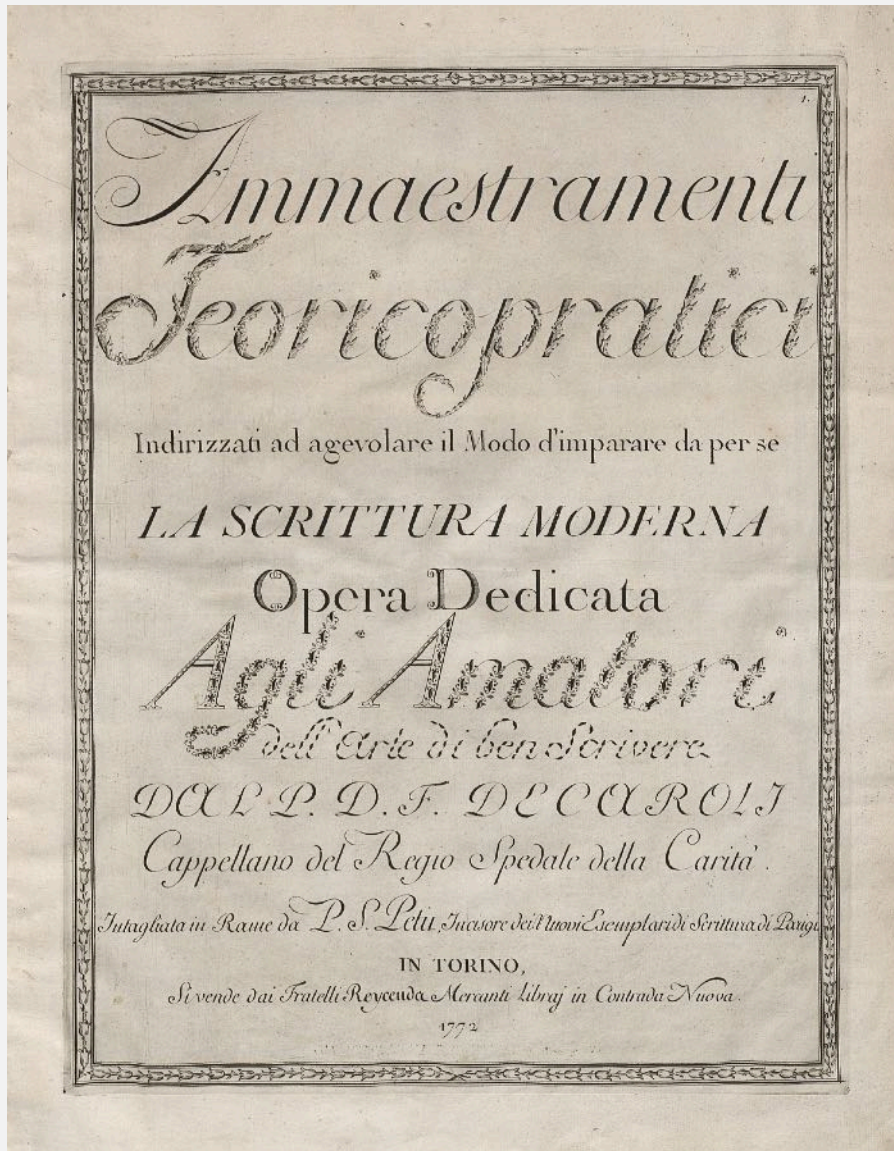 1.
Ammaestramenti
Teoricopratici
Indirizzati ad agevolare il Modo d'imparare da per se
LA SCRITTURA MODERNA
Opera Dedicata
Agli Amatori
dell'Arte di ben Scrivere
DAL P. D. F. DECAROLI
Cappellano del Regio Spedale della Carità.
Intagliata in Rame da P. S. Petit, Incisore dei Nuovi Esemplari di Scrittura di Parigi
IN TORINO,
Si vende dai Fratelli Reycends Mercanti Libraj in Contrada Nuova.
1772